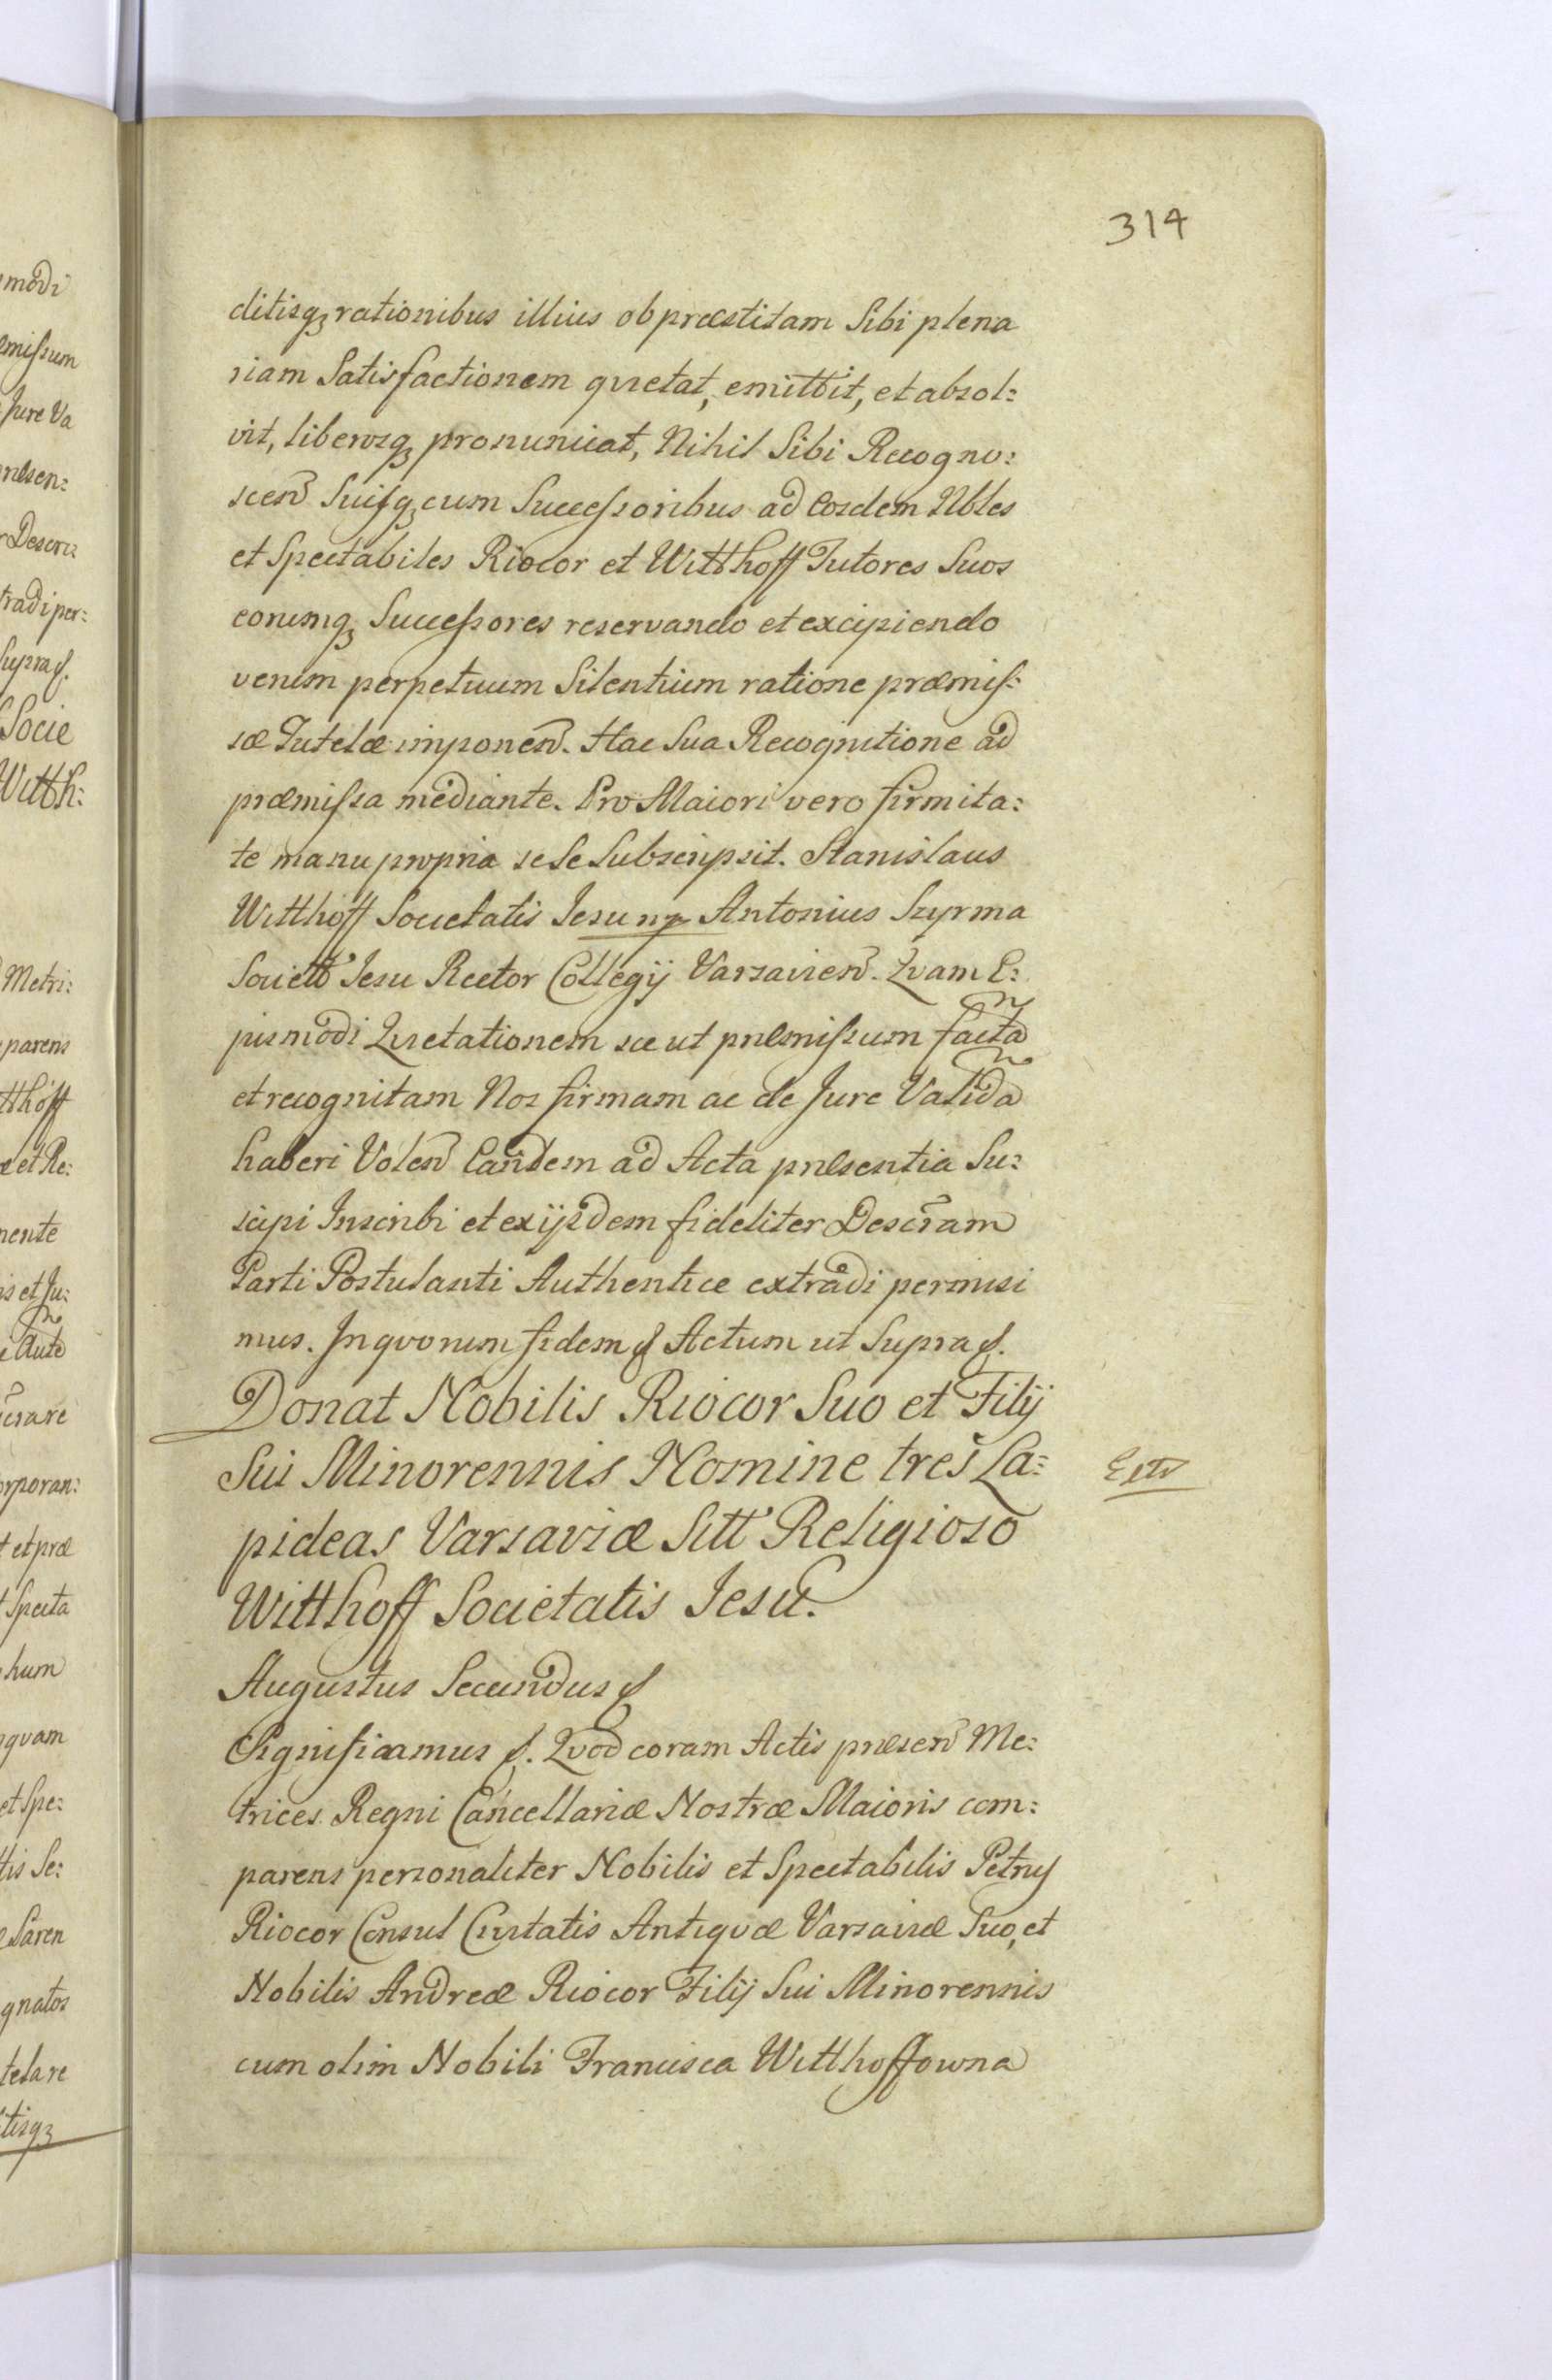 314
ditisq₃ rationibus illius ob præstitam Sibi plena
riam Satisfactionem quietat, emittit, et absol:
vit, liberosq₃ pronunciat, Nihil Sibi Recogno:
scen̄ Suisq₃ cum Successoribus ad Eosdem Nbles
et Spectabiles Riocor et Witthoff Tutores Suos
eorumq₃ Successores reservando et excipiendo
verum perpetuum Silentium ratione præmis:
sæ Tutelæ imponen̄. Hac Sua Recognitione ad
præmissa mediante. Pro Maiori vero firmita:
te manu propria se Se Subscripsit. Stanislaus
Witthoff Societatis Jesu mp Antonius Szyrma
Societt Jesu Rector Collegij Varsavien̄. Qvam E:
jusmodi Qvietationem sic ut præmissum factã
et recognitam Nos firmam ac de Jure Validã
haberi Volen̄ Eandem ad Acta præsentia Su:
scipi Inscribi et ex ijsdem fideliter Descr̃am
Parti Postulanti Authentice extradi permisi
mus. In qvorum fidem &. Actum ut Supra &.
Donat Nobilis Riocor Suo et Filij
Sui Minorennis Nomine tres La:
pideas Varsaviæ Sitt Religioso
Witthoff Societatis Jesu.
Augustus Secundus &
Significamus &. Qvod coram Actis præsen̄ Me:
trices Regni Cancellariæ Nostræ Maioris com:
parens personaliter Nobilis et Spectabilis Petrus
Riocor Consul Civitatis Antiqvæ Varsaviæ Suo, et
Nobilis Andreæ Riocor Filij Sui Minorennis
cum olim Nobili Francisca Witthoffowna